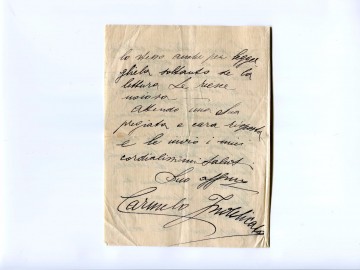 lo stesso anche per legger
gliela soltanto se la
lettura Le riesce
noiosa
Attendo una Sua
pregiata e cara risposta
e Le invio i miei
cordialissimi saluti
Suo affmo
Carmelo